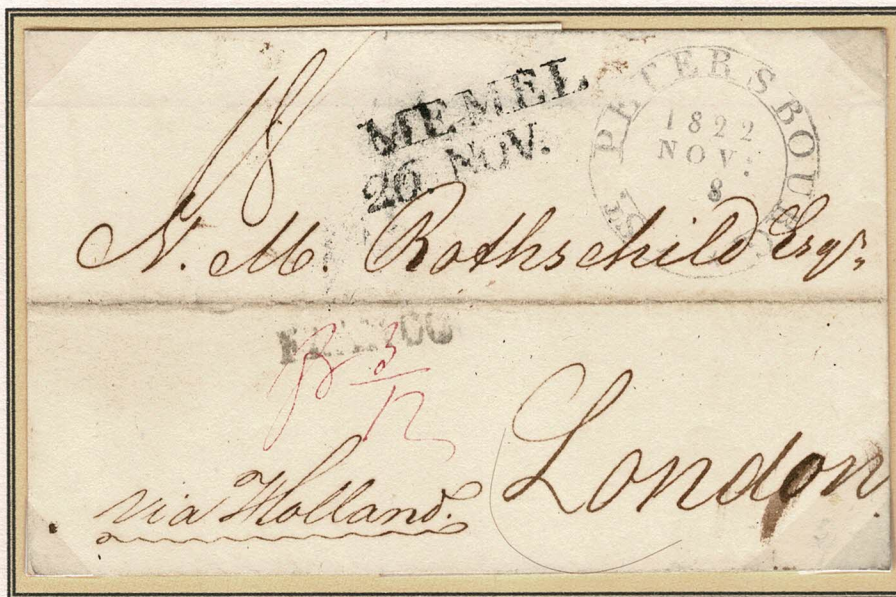 18
MEMEL
26 NOV.
ST PETERSBOURG
1822
NOV.
8
N. M. Rothschild Esqr.
FRANCO
3
12
London
via Holland.